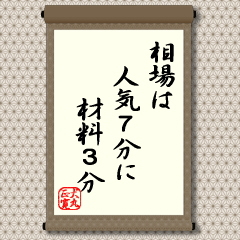 相場は
人気７分に
材料３分